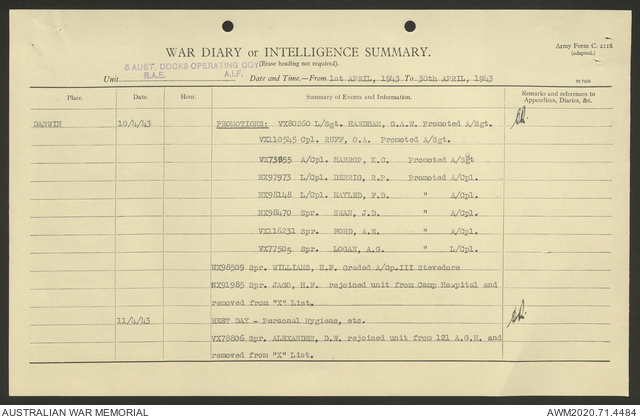 Army Form C. 2118
(adapted.)
WAR DIARY or INTELLIGENCE SUMMARY.
(Erase heading not required).
5 AUST. DOCKS OPERATING COY
Unit R.A.E. A.I.F. Date and Time.—From 1st APRIL, 1943 To 30th APRIL, 1943
Place. Date. Hour. Summary of Events and Information. Remarks and references to
Appendices, Diaries, &c.
DARWIN 10/4/43 PROMOTIONS: VX80260 L/Sgt. HARDHAM, G.A.W. Promoted A/Sgt.
VX110545 Cpl. RUFF, O.A. Promoted A/Sgt.
VX73855 A/Cpl. HARROP, K.C. Promoted A/Sgt
NX97973 L/Cpl. DERRIG, R.P. Promoted A/Cpl.
NX98148 L/Cpl. MAYLED, F.D. " A/Cpl.
NX98470 Spr. SWAN, J.D. " A/Cpl.
VX116231 Spr. FORD, A.E. " A/Cpl.
VX77505 Spr. LOGAN, A.G. " L/Cpl.
NX98509 Spr. WILLIAMS, H.F. Graded A/Gp.III Stevedore
NX91985 Spr. JAGO, H.F. rejoined unit from Camp Hospital and
removed from "X" List.
11/4/43 REST DAY - Personal Hygiene, etc.
VX78806 Spr. ALEXANDER, D.W. rejoined unit from 121 A.G.H. and
removed from "X" List.
AUSTRALIAN WAR MEMORIAL AWM2020.71.4484